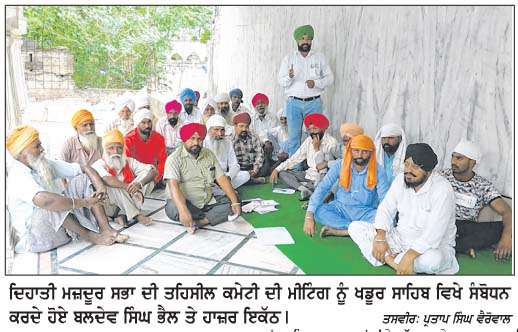 ਦਿਹਾਤੀ ਮਜ਼ਦੂਰ ਸਭਾ ਦੀ ਤਹਿਸੀਲ ਕਮੇਟੀ ਦੀ ਮੀਟਿੰਗ ਨੂੰ ਖਡੂਰ ਸਾਹਿਬ ਵਿਖੇ ਸੰਬੋਧਨ
ਕਰਦੇ ਹੋਏ ਬਲਦੇਵ ਸਿੰਘ ਭੈਲ ਤੇ ਹਾਜ਼ਰ ਇਕੱਠ। ਤਸਵੀਰ: ਪ੍ਰਤਾਪ ਸਿੰਘ ਵੈਰੋਵਾਲ